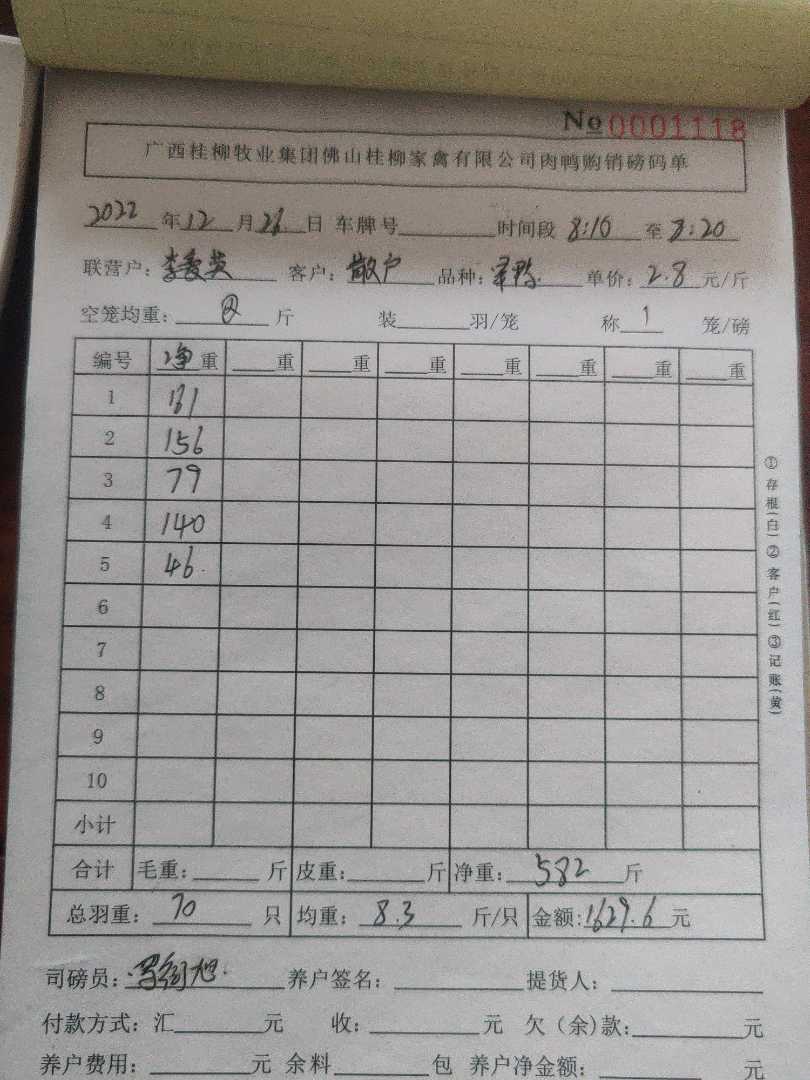 No 0001118
广西桂柳牧业集团佛山桂柳家禽有限公司肉鸭购销磅码单
2022 年 12 月 26 日 车牌号 时间段 8:10 至 8:20
联营户: 李爱英 客户: 散户 品种: 单价: 2.8 元/斤
空笼均重: 斤 装 羽/笼 称 1 笼/磅
编号 净重 重 重 重 重 重 重 重
1 161
2 156
3 79
4 140
5 46
6
7
8
9
10
小计
合计 毛重: 斤 皮重: 斤 净重: 582 斤
总羽重: 70 只 均重: 8.3 斤/只 金额: 1629.6 元
司磅员: 养户签名: 提货人:
付款方式: 汇 元 收: 元 欠(余)款: 元
养户费用: 元 余料 包 养户净金额: 元
①存根(白)②客户(红)③记账(黄)